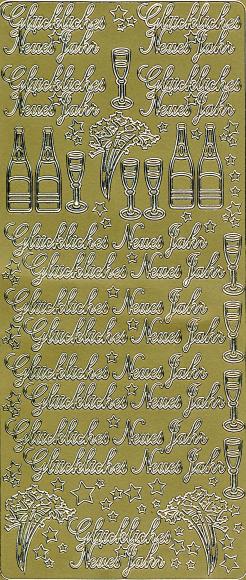 Glückliches Glückliches
Neues Jahr Neues Jahr
Glückliches Glückliches
Neues Jahr Neues Jahr
Glückliches Neues Jahr
Glückliches Neues Jahr
Glückliches Neues Jahr
Glückliches Neues Jahr
Glückliches Neues Jahr
Glückliches Neues Jahr
Glückliches Neues Jahr
Glückliches Neues Jahr
Glückliches
Neues Jahr